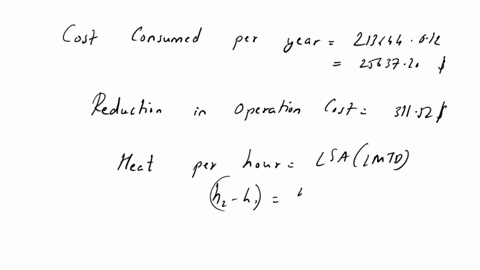 Cost Consumed per year = 213644 · 0.12
= 25637.20 $
Reduction in Operation Cost = 311.52 $
Heat per hour = LSA (LMTD)
(h₂ - h₁) =